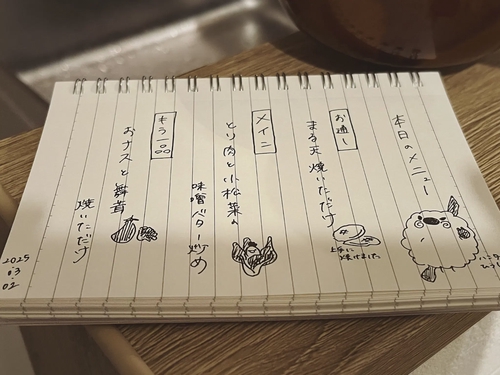 本日のメニュー
お通し
まる天焼いただけ
上手に
焼けました
メイン
とり肉と小松菜の
味噌バター炒め
もう一品
おナスと舞茸
焼いただけ
2025
.03
.02